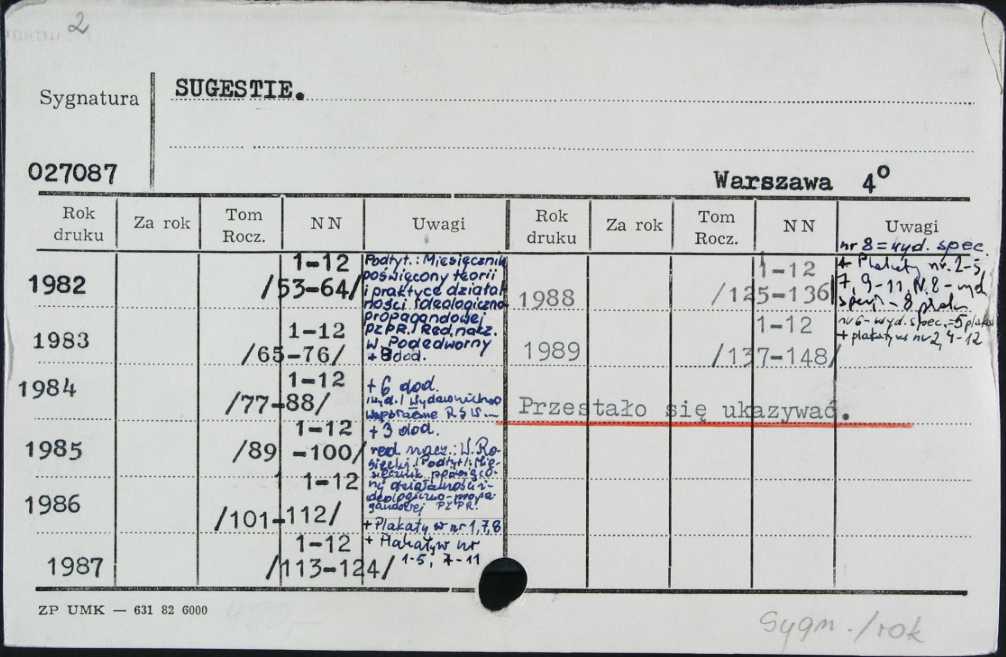 2
Sygnatura
SUGESTIE.
027087
Warszawa 4°
Rok druku Za rok Tom Rocz. NN Uwagi Rok druku Za rok Tom Rocz. NN Uwagi
1982 1-12 /53-64/
Podtyt.: Miesięcznik
poświęcony teorii
i praktyce działal
ności ideologiczno
propagandowej
PZPR./Red. nacz.
W. Podedworny
+ 8 dod.
1983 1-12 /65-76/
1984 1-12 /77-88/
+ 6 dod.
wyd./Wydawnictwo
współczesne RSW
1985 1-12 /89-100/
+ 3 dod.
red nacz.: W. Ro-
1986 1-12 /101-112/
ny działalności i-
deologiczno-propa-
gandowej PZPR.
+ Plakaty w nr 1,7,8
1987 1-12 /113-124/
+ Plakaty w nr
1-5, 7-11
1988 1-12 /125-136/
nr 8 = wyd. spec.
+ Plakaty nr. 2-5,
7, 9-11, N. 8 - wyd
1989 1-12 /137-148/
nr 6 - wyd. spec. = 5 plaka
+ plakaty w nr 2, 4-12
Przestało się ukazywać.
ZP UMK — 631 82 6000
Sygn./rok